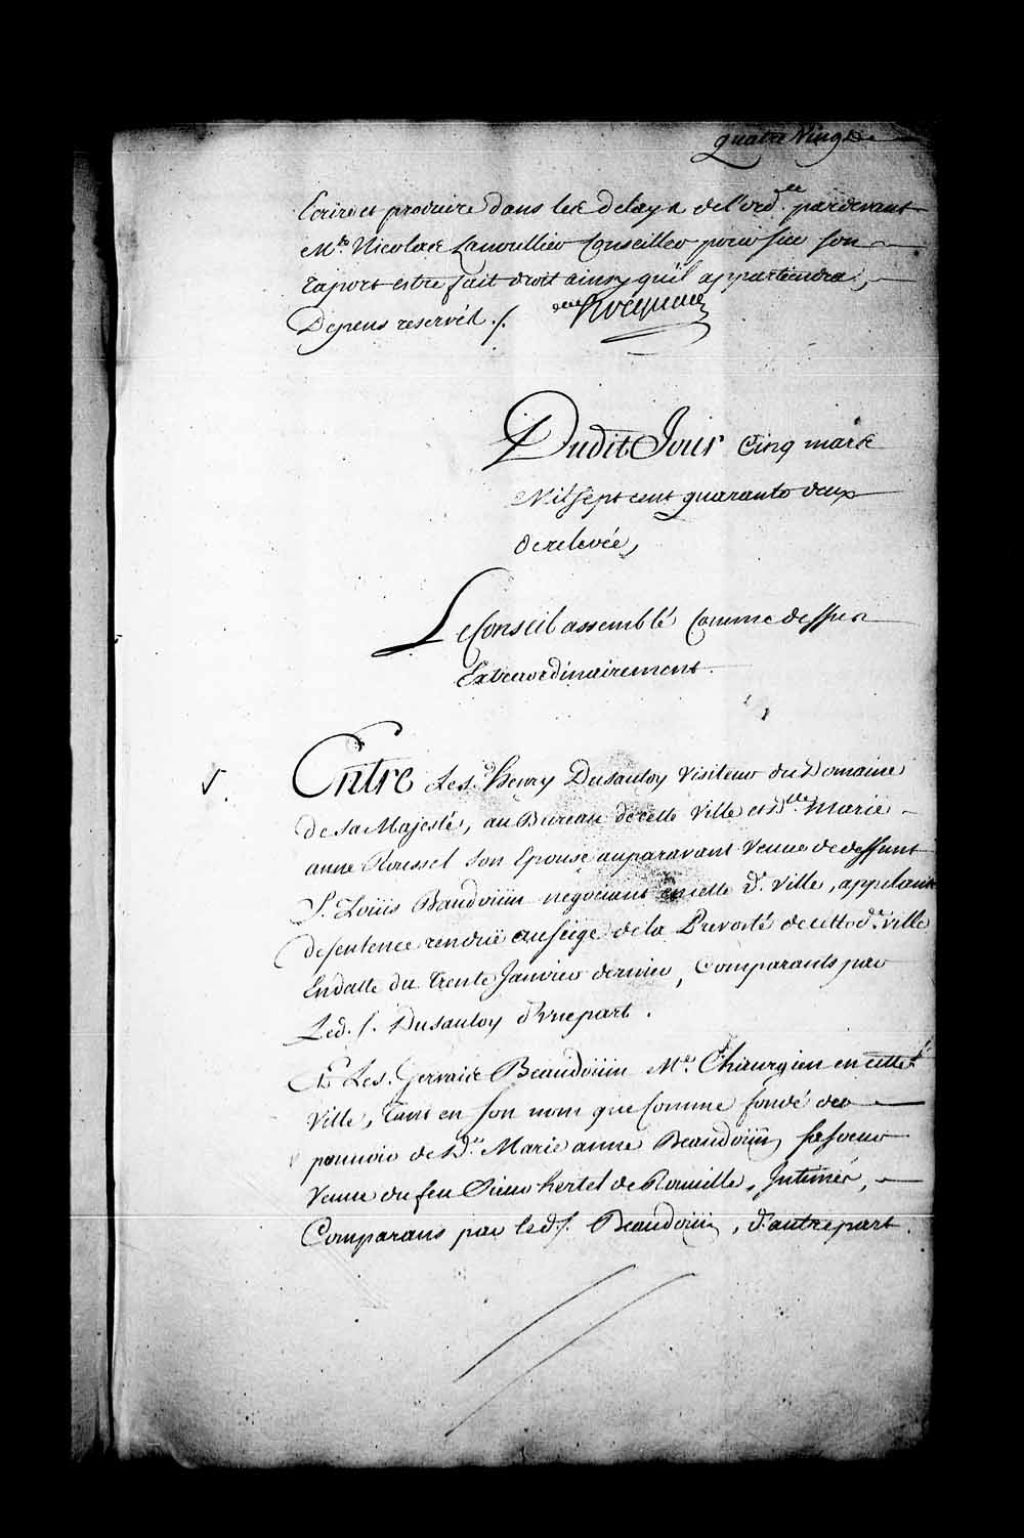 quatre Vingt
Ecrire et produire dans les delays de l'ord.ce pardevant
M.re Nicolas Lanoullier Conseiller pour sur son
raport estre fait droit ainsy qu'il appartiendra,
Depens reservés ./.
Dudit Jour Cinq mars
Mil sept cent quarante deux
de relevée,
Le Conseil assemblé Comme dessus
Extraordinairement.
Entre Le S. Henry Dusautoy Visiteur du Domaine
de Sa Majesté, au Bureau de cette Ville et D.lle Marie
anne Roussel Son Epouse auparavant Veuve de deffunt
S. Loüis Baudoüin negociant en cette d. Ville, appelants
de sentence rendüe au siege de la Prevosté de cette d. Ville
En datte du trente Janvier dernier, Comparants par
Led. S. Dusautoy d'Une part.
Et Le S. Gervais Beaudoüin M.e Chirurgien en cette d.
Ville, tant en son nom que Comme fondé de
pouvoir de D.e Marie anne Beaudoüin, sa soeur
Veuve du feu Sieur hertel de Rouville, Intimés,
Comparans par led. S. Beaudoüin, d'autre part.